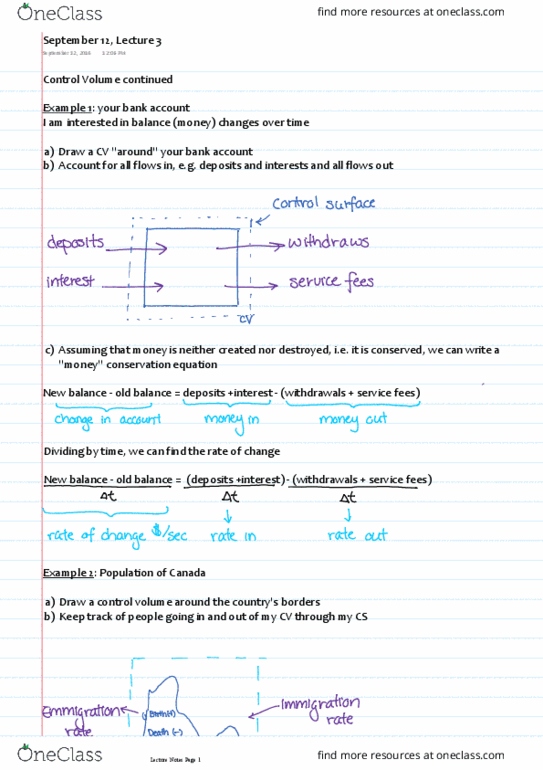 OneClass
find more resources at oneclass.com
September 12, Lecture 3
Control Volume continued
Example 1: your bank account
I am interested in balance (money) changes over time
a) Draw a CV "around" your bank account
b) Account for all flows in, e.g. deposits and interests and all flows out
Control surface
deposits
withdraws
interest
service fees
CV
c) Assuming that money is neither created nor destroyed, i.e. it is conserved, we can write a
"money" conservation equation
New balance - old balance = deposits +interest- (withdrawals + service fees)
change in account money in money out
Dividing by time, we can find the rate of change
New balance - old balance = (deposits +interest)- (withdrawals + service fees)
Δt Δt Δt
rate of change $/sec rate in rate out
Example 2: Population of Canada
a) Draw a control volume around the country's borders
b) Keep track of people going in and out of my CV through my CS
Emmigration
rate
Birth(+)
Death (-)
immigration
rate
OneClass
Lecture Notes Page 1
find more resources at oneclass.com